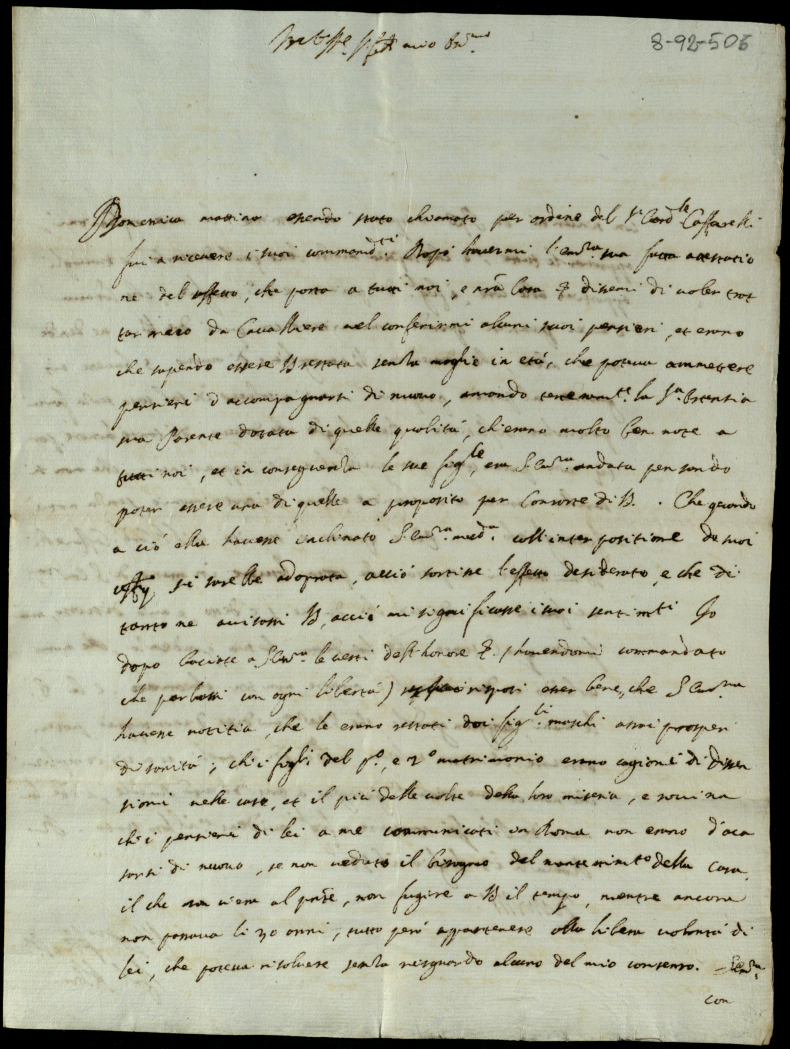 8-92-506
mio
Domenica mattina essendo stato chiamato per ordine del S.r Card.le Caffarelli
fui a ricevere i suoi commandi.ti Dopo havermi l'em.za sua fatta attestatio
ne del affetto, che porta a tutti noi, e n̄ra Casa &. dissemi di voler trat
tar meco da Cavalliere nel conferirmi alcuni suoi pensieri, et erano
che sapendo essere B restata senza moglie in età, che poteva ammettere
pensieri d'accompagnarsi di nuovo, havendo la S.ra Ortensia
sua Parente dotata di quelle qualità, ch'erano molto ben note a
tutti noi, et in conseguenza le sue fig.le, era S. Em.za andata pensando
poter essere una di quelle a proposito per Consorte di B. . Che quando
a ciò ella havesse inclinato S. Em.za med.a coll'interpositione de suoi
si sarebbe adoprata, acciò sortisse l'effetto desiderato, e che di
tanto ne avisassi B, acciò mi significasse i suoi sentim.ti Io
dopo baciate a S. Em.za le vesti dell'honore &. (havendomi commandato
che parlassi con ogni libertà) risposi esser bene, che S. Em.za
havesse notitia, che le erano restati doi fig.li maschi assai prosperi
di sanità; ch'i figli del p.o, e 2.o matrimonio erano cagioni di dissen
sioni nelle case, et il più delle volte della loro miseria, e rovina
ch'i pensieri di lei a me communicati in Roma non erano d'aca
sarsi di nuovo, se non veduto il bisogno del mantenim.to della casa,
il che non al p̄nte, non fugire a B il tempo, mentre ancora
non passava li 30 anni, tutto però appartenere alla libera volontà di
lei, che poteva risolvere senza risguardo alcuno del mio consenso. S. Em.za
con